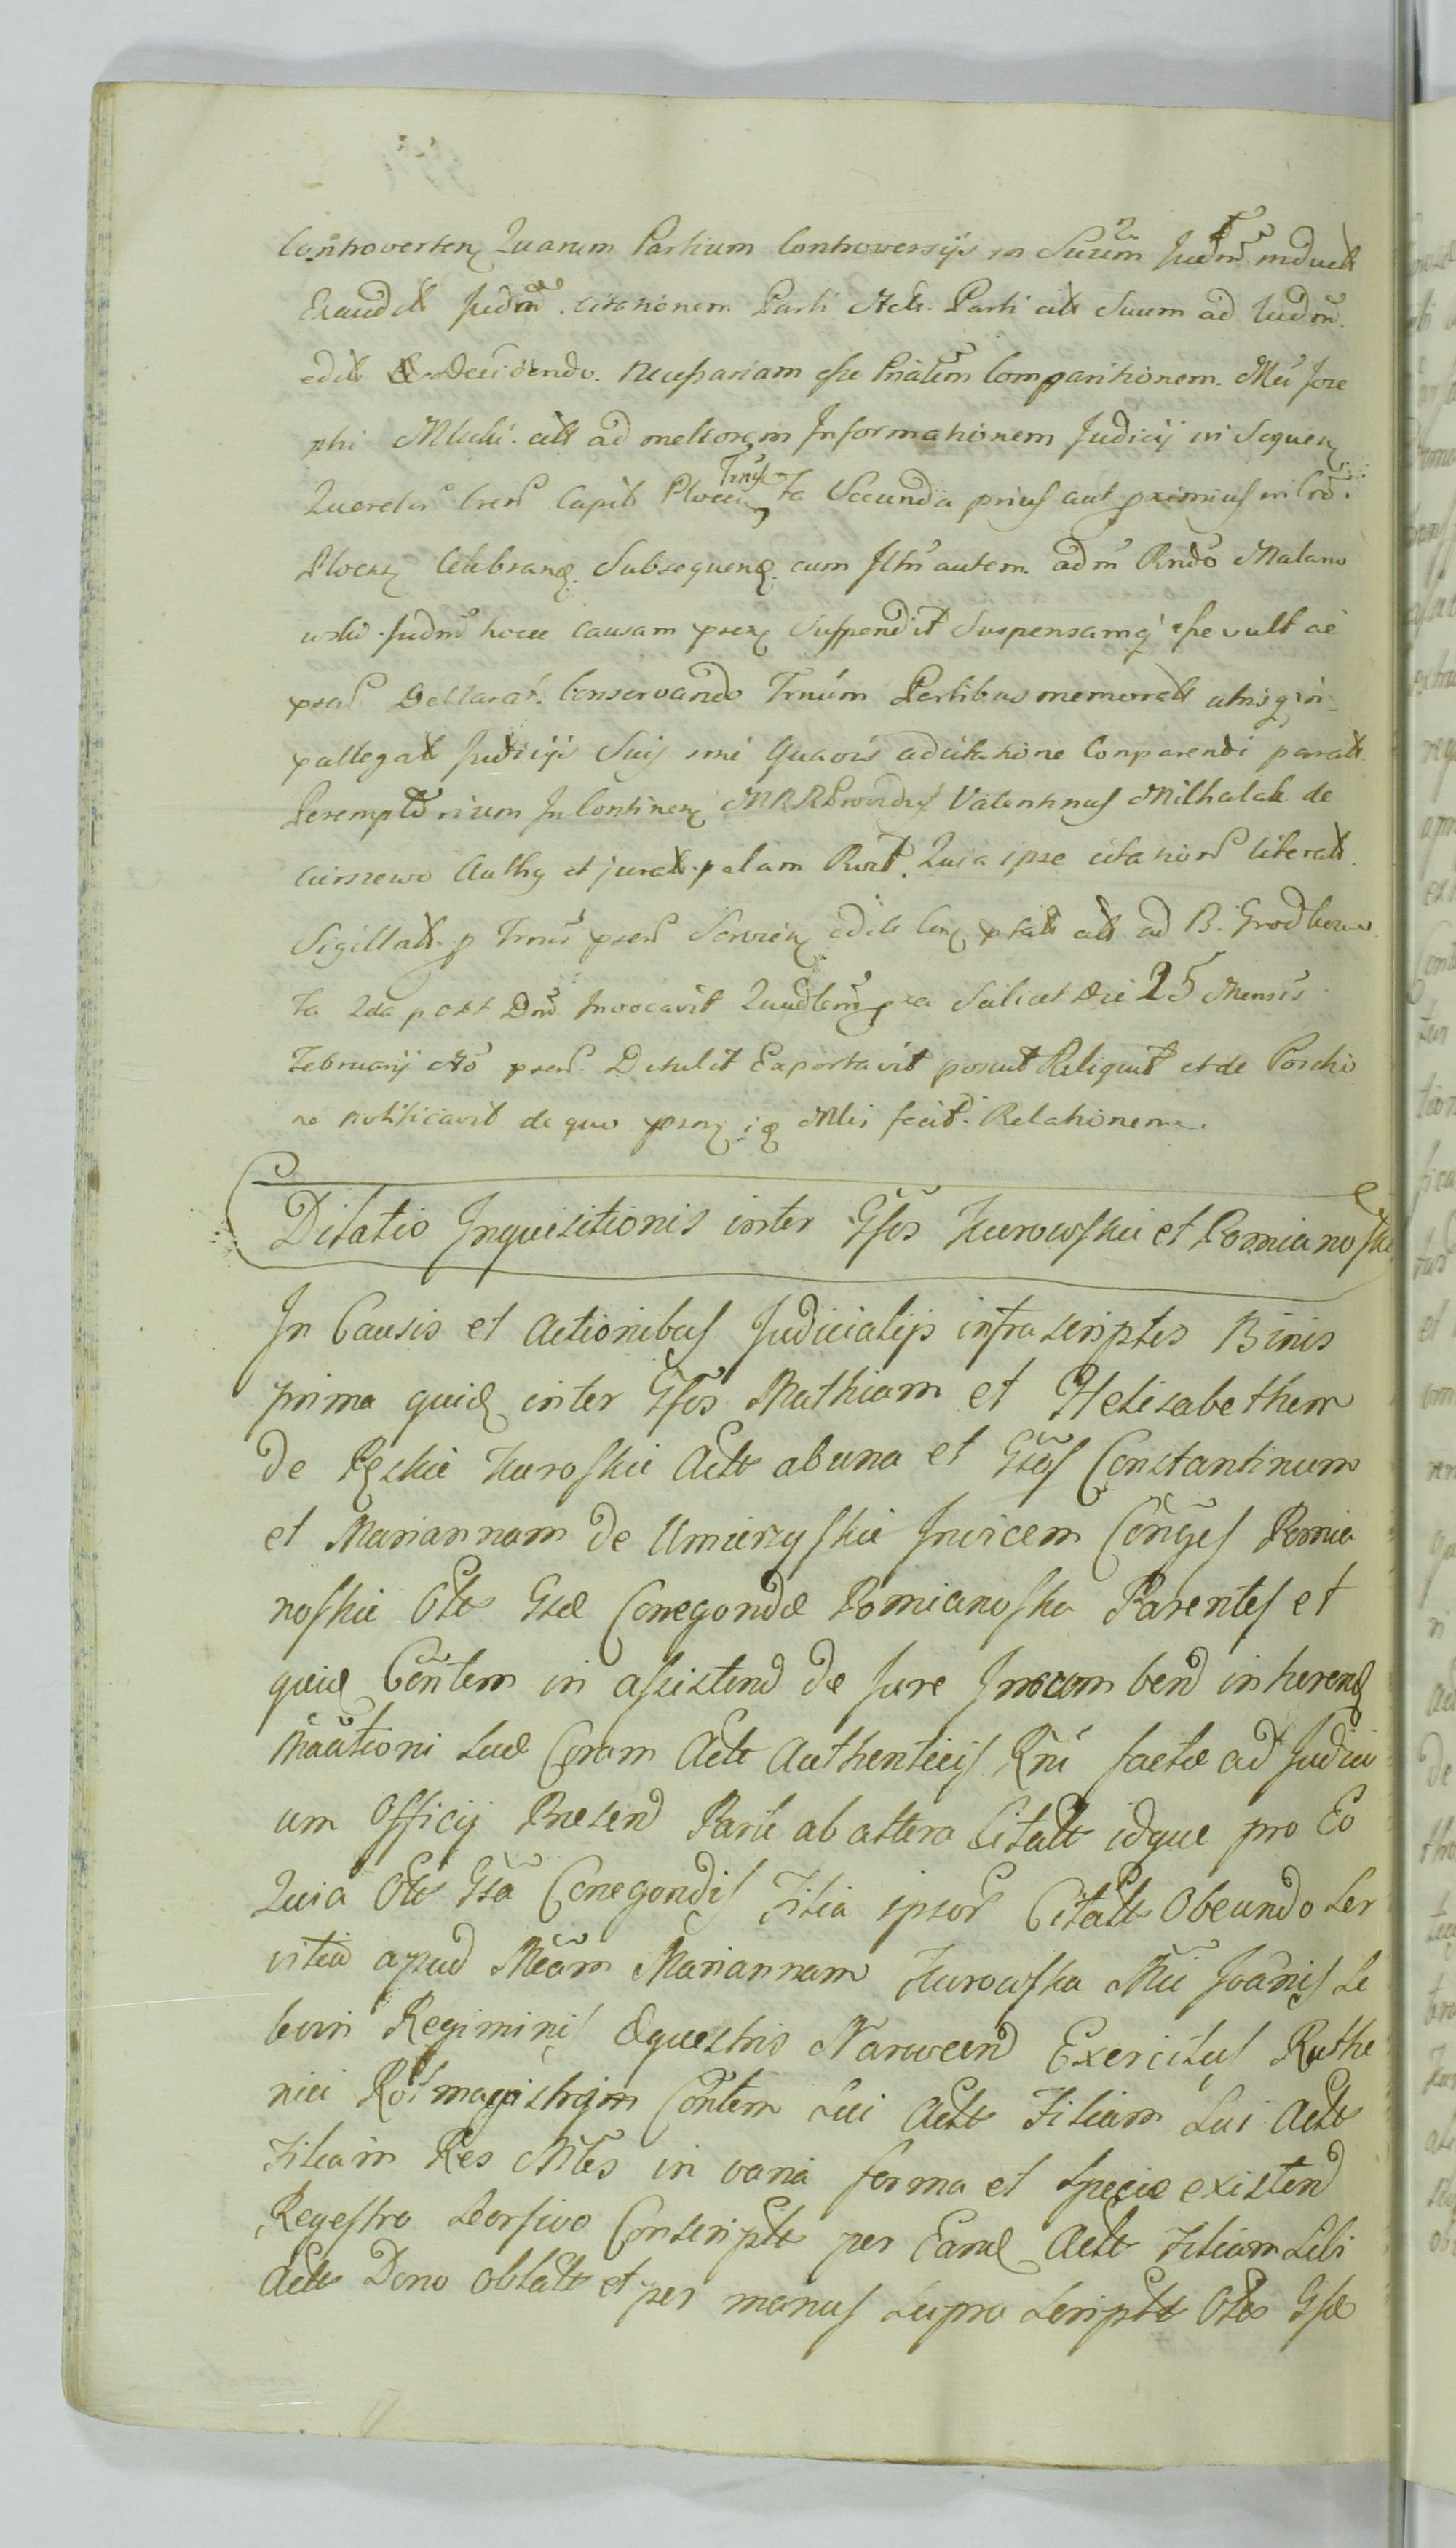 Controverten Quarum Partium Controversijs in Suum Judm induct
Exaudit Judm. citationem Parti Act. Parti cit Suum ad Judm.
edit & Decidendo. necessariam esse Priatem Comparitionem. Mci Jose
phi Mlicki. citt ad meliorem Informationem Judicij in Sequen
Querelis Cren Capit Plocen Trnis fa Secunda prius aut proximius in Crd.
Plocen Celebrand. Subsequend. cum Illri autem. adm Rndo Malano
wski. Judm hocce causam psen Suspendit Suspensamq esse vult ac
psen Declarat. Conservando Trnum Partibus memorat utrisq in
pallegat Judicijs Suis sine Quavis adcitatione Comparendi parat.
Peremptorium In Continen MRR Providus Valentinus Michalak de
Cierszewo Authg et jurat. palam Rcit. Quia ipse citation literat.
Sigillat. p Trnis psen Servien edit Cen ptat citt ad B. Grodkowo
fa 2da post Dm Invocavit Quadlem pxa Scilicet Die 25 Mensis
Februarij Ao psen. Detulit Exportavit posuit Reliquit et de Positio
ne notificavit de quo psen iq Mlis fecit. Relationem.
Dilatio Inquisitionis inter Gsos Kurowskie et Pomianoskie
In Causis et Actionibus Judicialijs infra scriptis Binis
prima quid inter Gsos Mathiam et Helisabethem
de Kuroskie Actt ab una et Gsos Constantinum
et Mariannam de Umierzyskie Invicem Conges Pomia
noskie Oltt Gsæ Conegondæ Pomianoska Parentes et
quid Contem in assistend de Jure Incombend inherend
Mātioni suæ Coram Actt Authenticis Rni factæ ad Judici
um Officij Presend Parte ab altera Citatt idque pro Eo
Quia Oltt Gsa Conegondis Filia ipsor Citatt Obeundo Ser
vitia apud Mcam Mariannam Kurowska Mci Joanis Le
Regiminis Equestris Exercitus Ruthe
nici Rotmagistrym Contem Sui Actt Filiam Sui Actt
Filiam Res Mtes in varia forma et specie existend
Regestro Seorsivo Conscriptt per Eand Actt Filiam Sibi
Actt Dono oblatt et per manus Supra Scriptt Oltt Gsæ